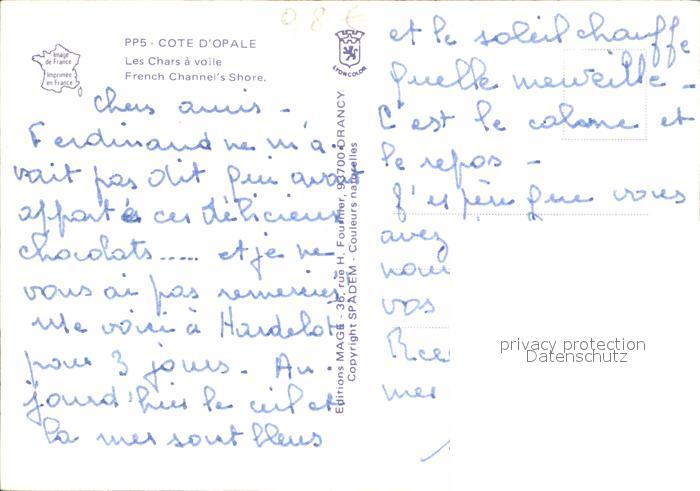 0 8 €
Image
de France
Imprimée
en France
PP5 - COTE D'OPALE
Les Chars à voile
French Channel's Shore.
LYONCOLOR
Editions MAGE - 36, rue H. Fournier, 93700-DRANCY
Copyright SPADEM - Couleurs naturelles
Chers amis -
Ferdinand ne m'a-
vait pas dit qui avait
apporté ces délicieux
chocolats..... et je ne
vous ai pas remerciés
Me voici à Hardelot
pour 3 jours. Au-
jourd'hui le ciel et
la mer sont bleus
et le soleil chauffe
quelle merveille -
C'est le calme et
le repos -
J'espère que vous
avez
vos
mer
privacy protection
Datenschutz